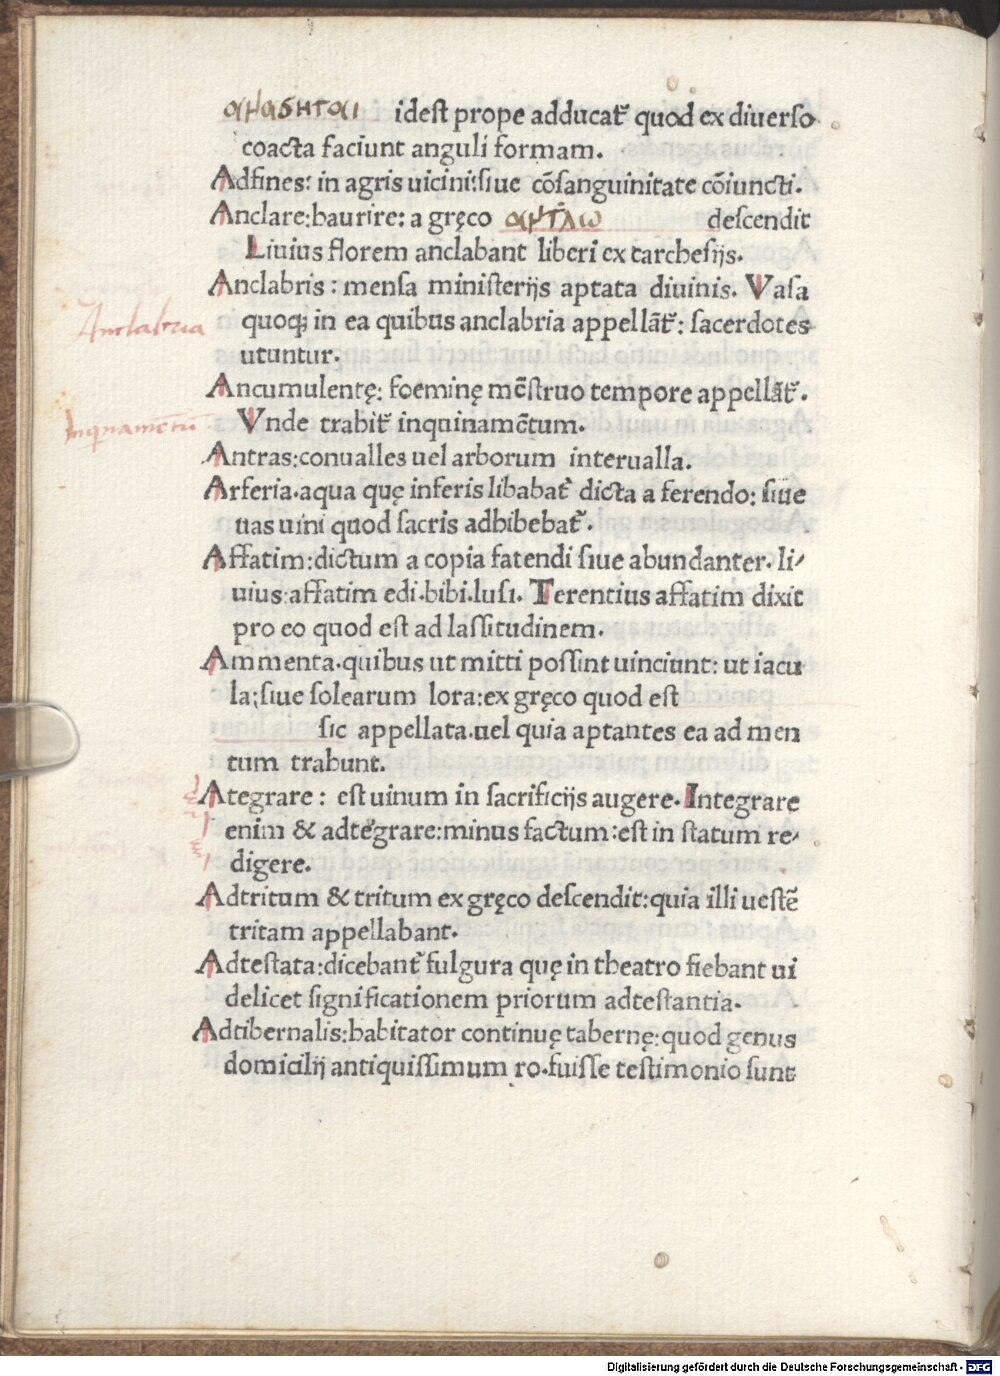 αμαδηται idest prope adducat᷑ quod ex diuerso
coacta faciunt anguli formam.
Adfines: in agris uicini:siue cōsanguinitate cōiuncti.
Anclare:haurire: a gręco αντλω descendit
Liuius florem anclabant liberi ex carchesijs.
Anclabris : mensa ministerijs aptata diuinis. Vasa
Anclabria
quoq; in ea quibus anclabria appellāt᷑: sacerdotes
utuntur.
Ancumulentę: foeminę mēstruo tempore appellāt᷑.
Inquinamētū
Vnde trahit᷑ inquinamētum.
Antras:conualles uel arborum interualla.
Arferia.aqua quę inferis libabat᷑ dicta a ferendo: siue
uas uini quod sacris adhibebat᷑.
Affatim:dictum a copia fatendi siue abundanter. li-
uius:affatim edi.bibi.lusi. Terentius affatim dixit
pro eo quod est ad lassitudinem.
Ammenta.quibus ut mitti possint uinciunt: ut iacu
la;siue solearum lora:ex gręco quod est
sic appellata.uel quia aptantes ea ad men
tum trahunt.
Ategrare : est uinum in sacrificijs augere. Integrare
enim & adtegrare:minus factum:est in statum re-
digere.
Adtritum & tritum ex gręco descendit:quia illi uestē
tritam appellabant.
Adtestata:dicebant᷑ fulgura quę in theatro fiebant ui
delicet significationem priorum adtestantia.
Adtibernalis:habitator continuę tabernę:quod genus
domicilij antiquissimum ro.fuisse testimonio sunt
Digitalisierung gefördert durch die Deutsche Forschungsgemeinschaft - DFG